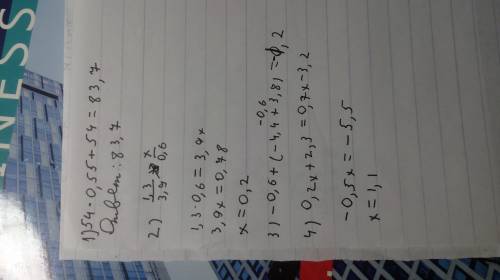 NESS
1) 54 · 0,55 + 54 = 83,7
Ответ: 83,7
2) 1,3/3,9 = x/0,6
1,3 · 0,6 = 3,9x
3,9x = 0,78
x = 0,2
3) -0,6 + (-4,4 + 3,8) = -1,2
-0,6
4) 0,2x + 2,3 = 0,7x - 3,2
-0,5x = -5,5
x = 1,1